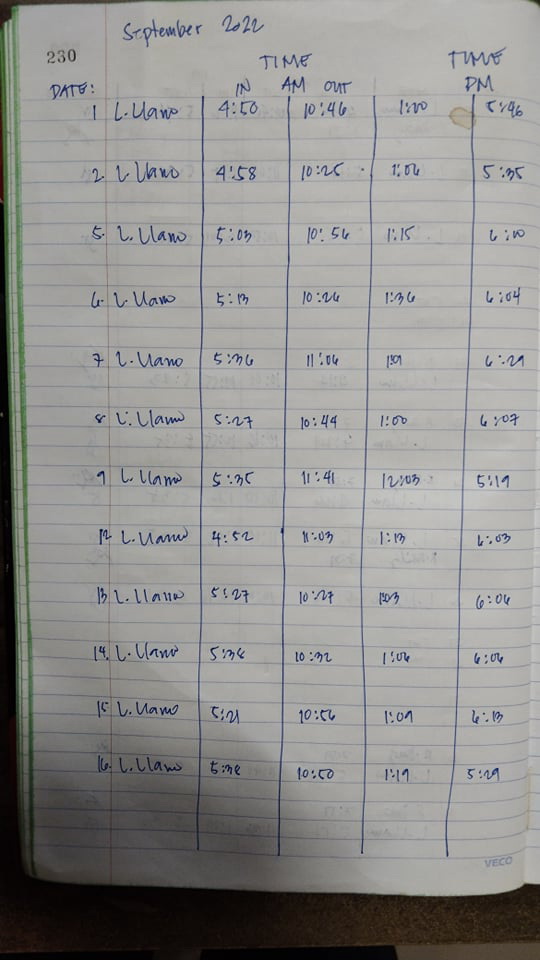 September 2022
230
TIME TIME
DATE: IN AM OUT PM
1 L. Llano 4:50 10:46 1:00 5:46
2 L. Llano 4:58 10:25 1:06 5:35
5. L. Llano 5:03 10:56 1:15 6:10
6. L. Llano 5:13 10:26 1:36 6:04
7 L. Llano 5:36 11:06 1:09 6:29
8 L. Llano 5:27 10:44 1:00 6:07
9 L. Llano 5:35 11:41 12:03 5:19
12 L. Llano 4:52 11:03 1:13 6:03
13 L. Llano 5:27 10:27 1:03 6:06
14. L. Llano 5:38 10:32 1:06 6:06
15 L. Llano 5:21 10:56 1:09 6:13
16. L. Llano 5:38 10:50 1:19 5:29
VECO